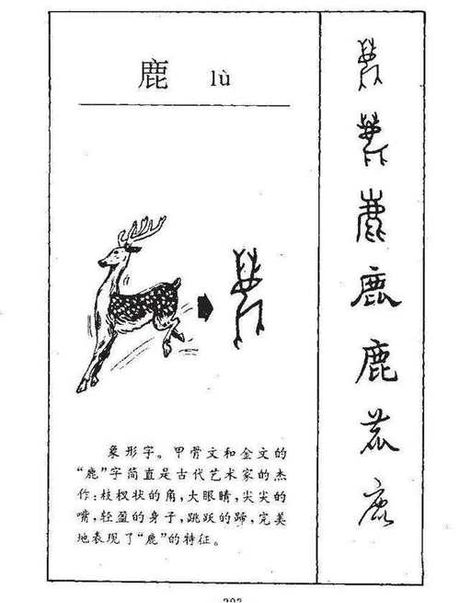 鹿 lù
象形字。甲骨文和金文的
“鹿”字简直是古代艺术家的杰
作：枝杈状的角，大眼睛，尖尖的
嘴，轻盈的身子，跳跃的蹄，完美
地表现了“鹿”的特征。
鹿
鹿